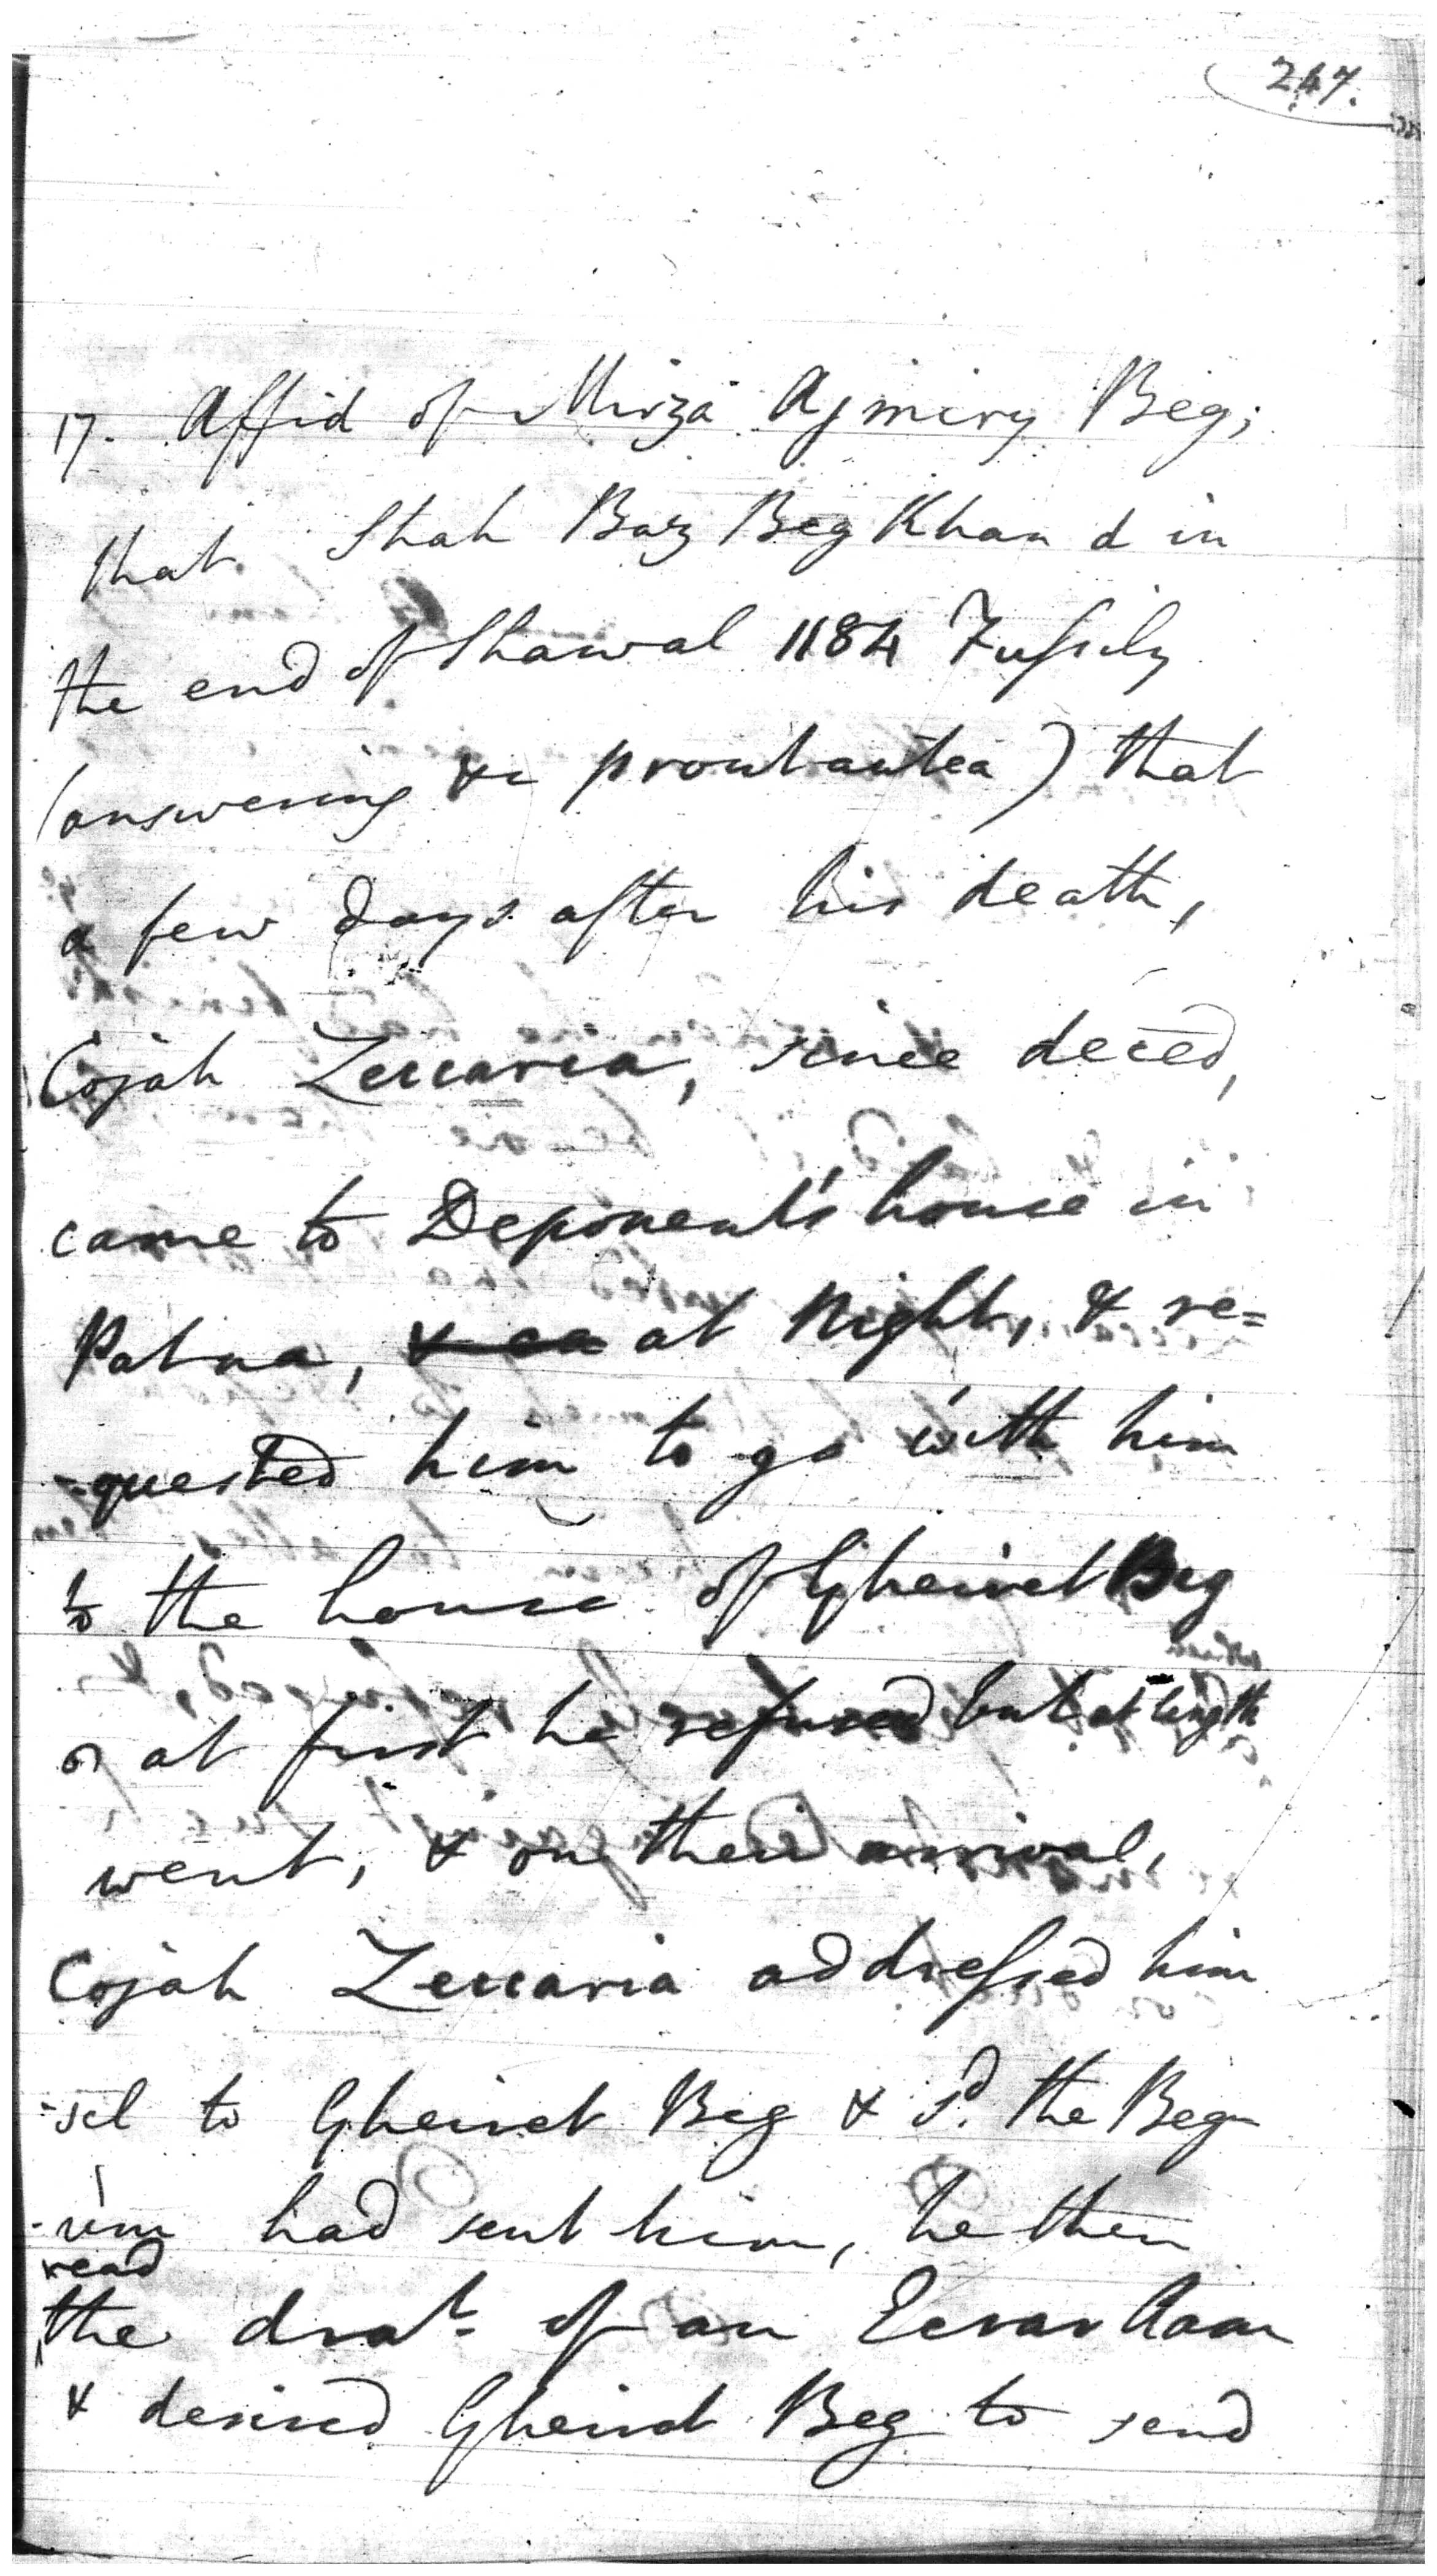 247.
17. Affid of Mirza Ajmiry Beg;
that Shah Baz Beg Khan d in
the end of Shawal 1184 Fussily
(answering &c prout antea) that
a few days after his death,
Cojah Zeccaria, since deced,
came to Deponent's house in
Patna, at Night, & re=
-quested him to go with him
to the house of Gheiret Beg
at first he refused but at length
went, & on their arrival,
Cojah Zeccaria addressed him
-sel to Gheiret Beg & sd. the Beg
-um had sent him, he then
read
the drat. of an Ecrar Naam
& desired Gheirat Beg to send